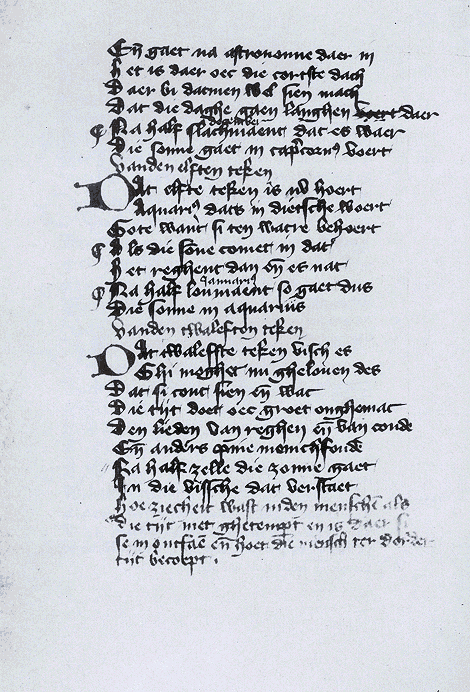 En gaet na astronomie daer in
Het is daer oec die cortste dach
Daer bi datmen wel sien mach
Dat die daghe gaen langhen voert daer
december
Na half slachmaent dat es waer
Die sonne gaet in capcornꝰ voert
Vanden elften teken
Dat elfte teken is nv hoert
Aquariꝰ dats in dietsche woert
Gote want si ten watre behoert
Als die sone comet in dat
Het reghent dan en es nat
januariꝰ
Na half loumaent so gaet dus
Die sonne in aquarius
Vanden twaleften teken
Dat twalefste teken visch es
Ghi moghet mi gheloven des
Dat si cout sien en wat
Die tijt doet oec groet onghemac
Den lieden van reghen en van coude
En anders pine menichfoude
Na half zelle die zonne gaet
In die vissche dat verstaet
hoe ziecheit wast inden menschē als
die tijt niet ghetempt en is daer
se in ontfaē en hoet die mensch ter
tijt becoept